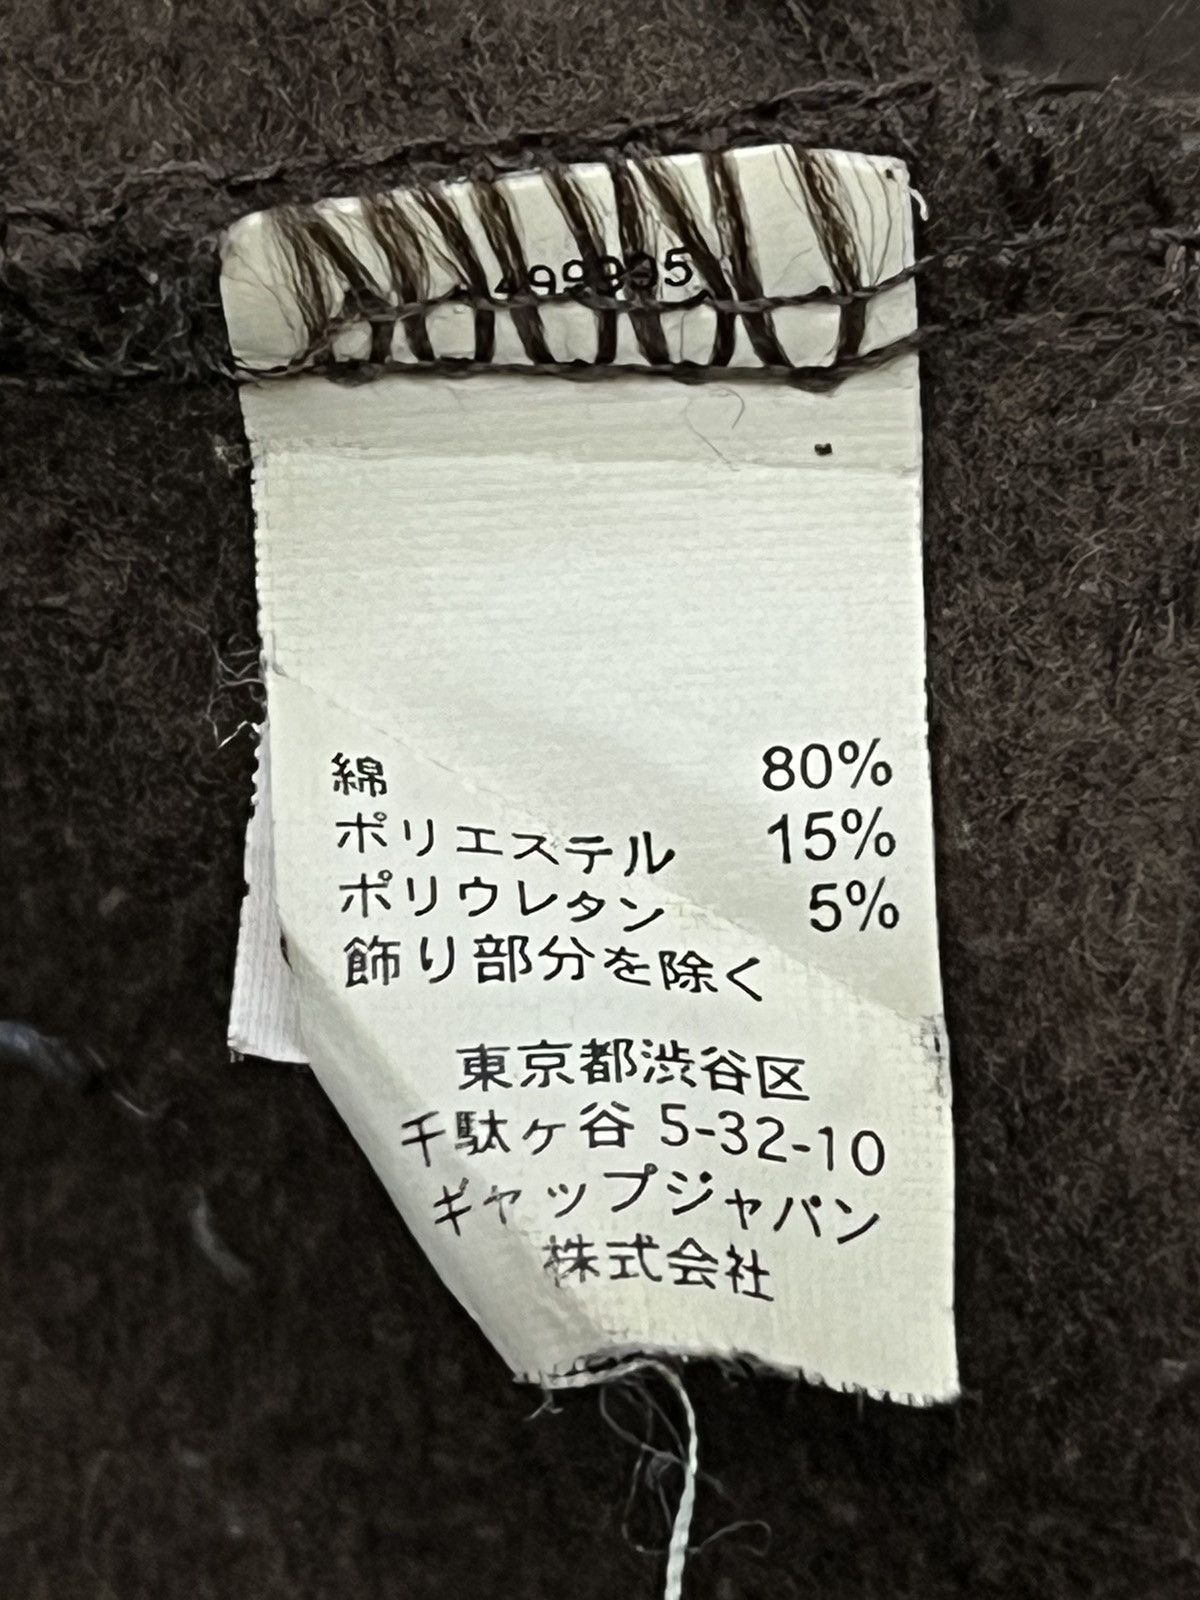 綿 80%
ポリエステル 15%
ポリウレタン 5%
飾り部分を除く
東京都渋谷区
千駄ヶ谷 5-32-10
ギャップジャパン
株式会社